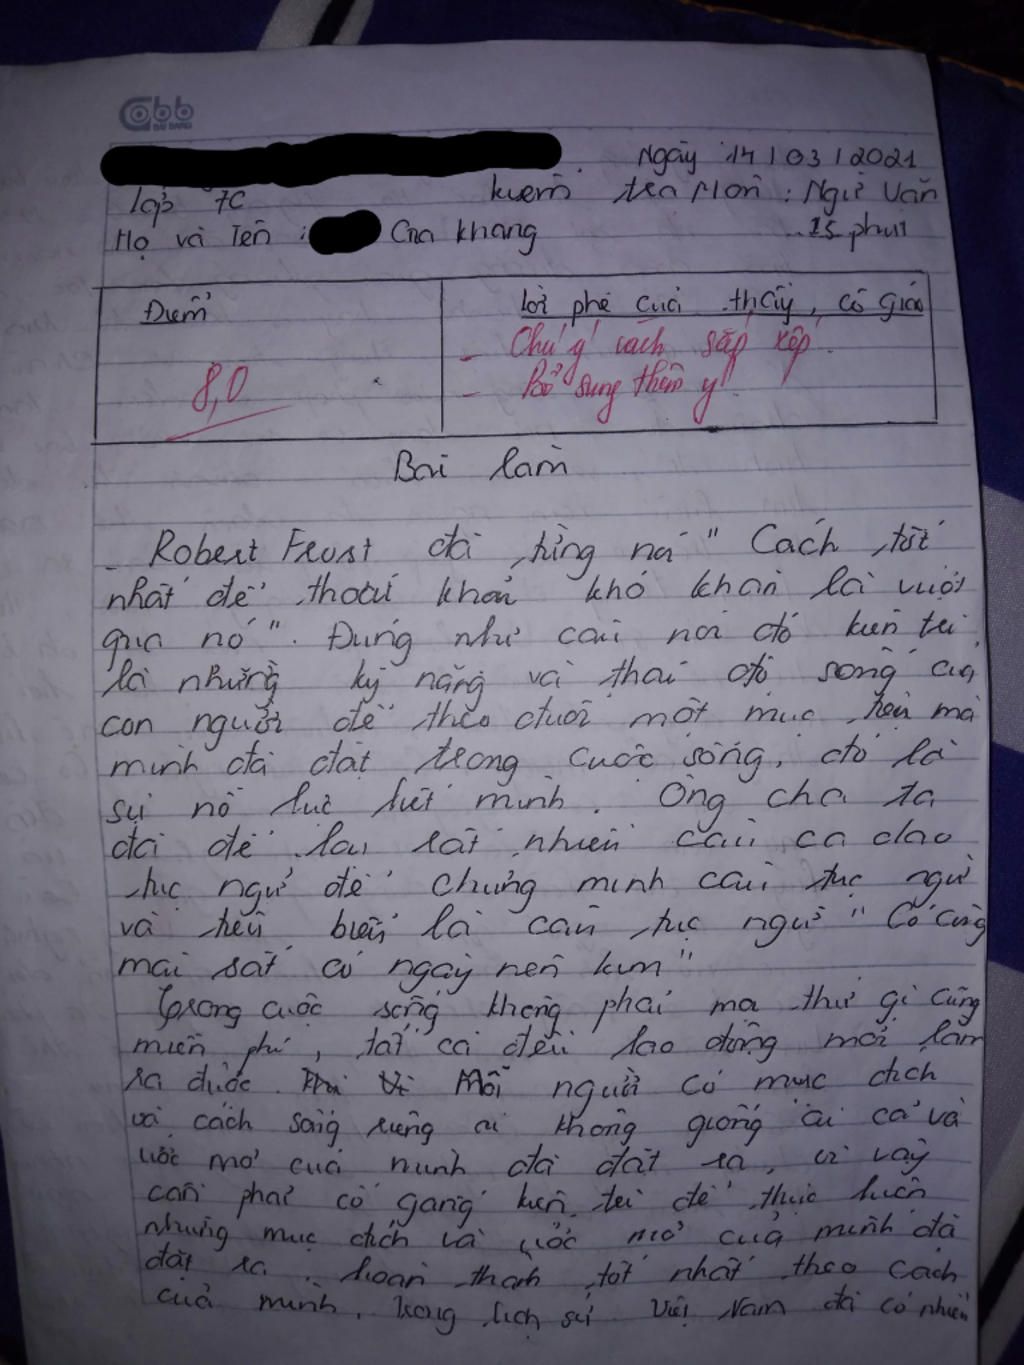 Cobb
Ngày 14/03/2021
lớp 7C
kiểm tra Môn : Ngữ Văn
Họ và Tên : Gia Khang
15 phút
Điểm
Lời phê của thầy, cô giáo
8,0
- Chú ý cách sắp xếp.
- Bổ sung thêm ý
Bài làm
Robert Frost đã từng nói " Cách tốt
nhất để thoát khỏi khó khăn là vượt
qua nó". Đúng như câu nói đó kiên trì
là những kỹ năng và thái độ sống của
con người để theo đuổi một mục tiêu mà
mình đã đặt trong cuộc sống, đó là
sự nỗ lực hết mình. Ông cha ta
đã để lại rất nhiều câu ca dao
tục ngữ để chứng minh câu tục ngữ
và tiêu biểu là câu tục ngữ " Có công
mài sắt có ngày nên kim"
Trong cuộc sống không phải mà thứ gì cũng
miễn phí, tất cả đều lao động mới làm
ra được. Mỗi người có mục đích
và cách sống riêng ai không giống ai cả và
ước mơ của mình đã đặt ra, vì vậy
cần phải cố gắng kiên trì để thực hiện
những mục đích và ước mơ của mình đã
đặt ra, hoàn thành tốt nhất theo cách
của mình. Trong lịch sử Việt Nam đã có nhiều